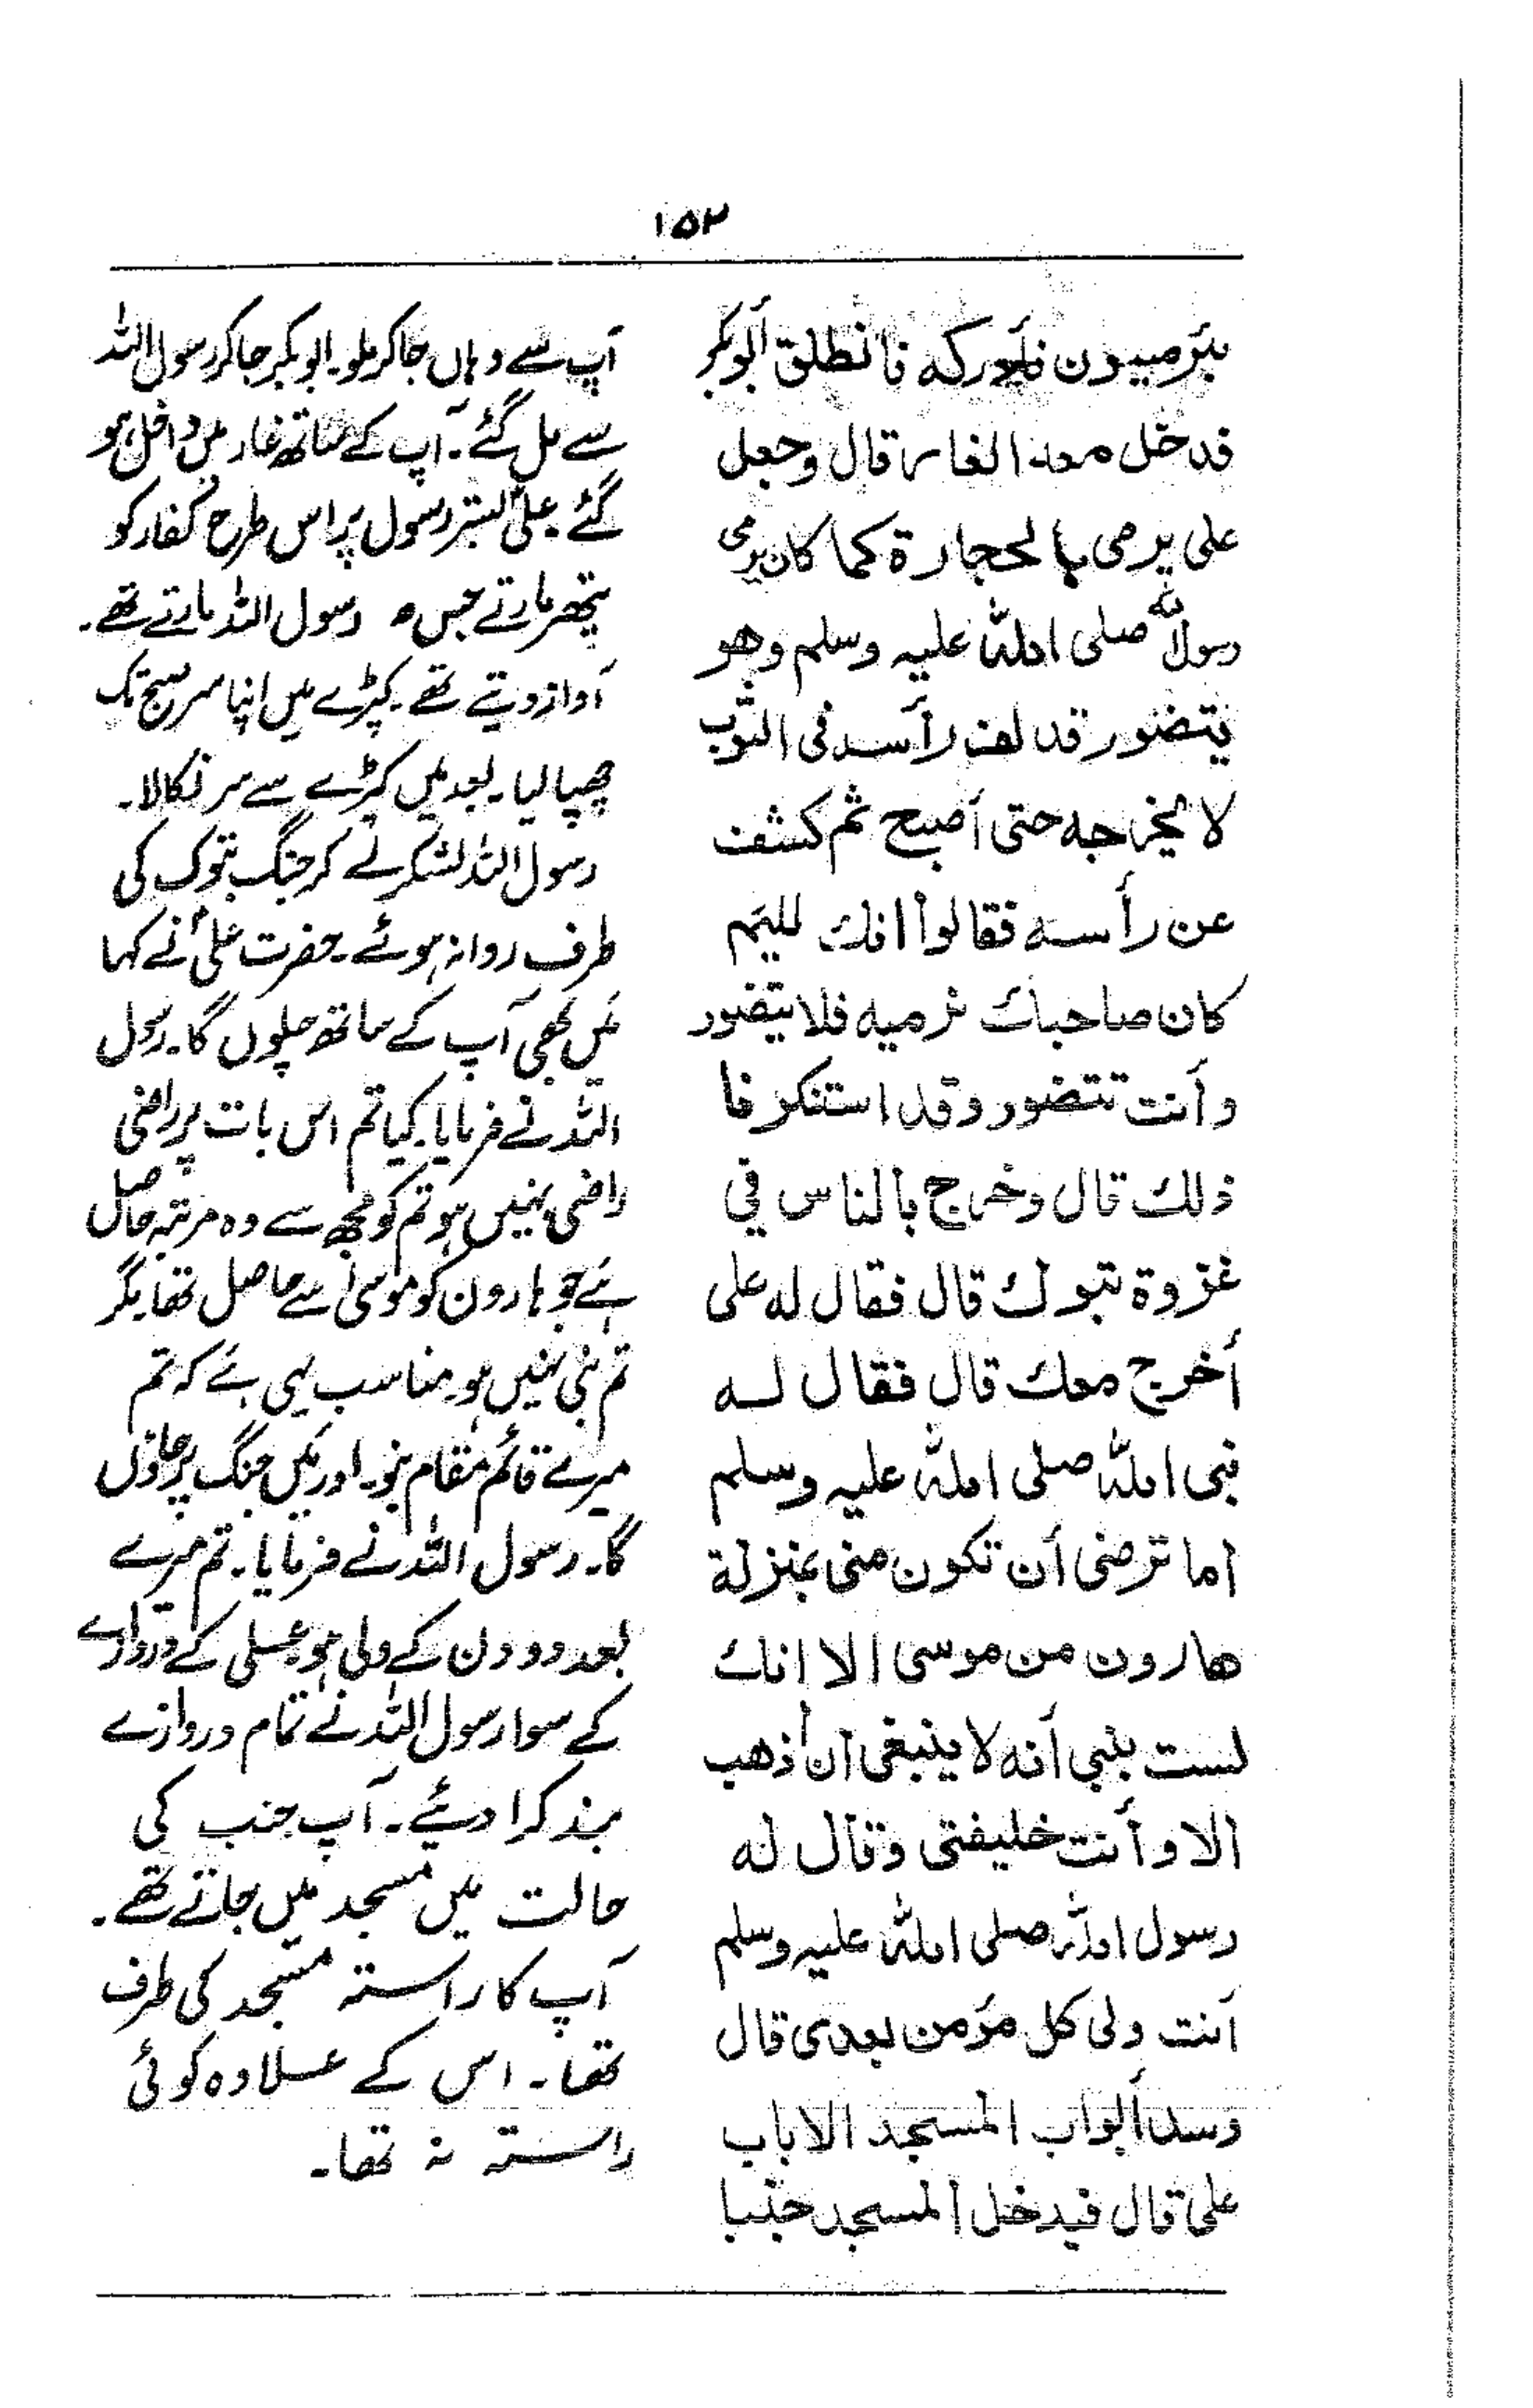 ۱۵۲
بئر ميمون فأدركه فانطلق أبوبكر
فدخل معه الغار قال وجعل
على يرمى بالحجارة كما كان يرمى
رسول الله صلى الله عليه وسلم وهو
يتضور قد لف رأسه فى الثوب
لا يخرجه حتى أصبح ثم كشف
عن رأسه فقالوا انك للئيم
كان صاحبك نرميه فلا يتضور
وأنت تتضور وقد استنكرنا
ذلك قال وخرج بالناس في
غزوة تبوك قال فقال له على
أخرج معك قال فقال له
نبى الله صلى الله عليه وسلم
اما ترضى أن تكون منى بمنزلة
هارون من موسى الا انك
لست بنبي أنه لا ينبغى أن أذهب
الا و أنت خليفتى وقال له
رسول الله صلى الله عليه وسلم
أنت ولى كل مؤمن بعدى قال
وسد أبواب المسجد الا باب
على قال فيدخل المسجد جنبا
آپ سے وہاں جا کر ملو۔ ابوبکر جا کر رسول اللہ
سے مل گئے۔ آپ کے ساتھ غار میں داخل ہو
گئے۔ علیؑ بستر رسول پر اس طرح کفار کو
پتھر مارتے جس رسول اللہ مارتے تھے۔
آواز دیتے تھے۔ کپڑے میں اپنا سر صبح تک
چھپا لیا۔ بعد میں کپڑے سے سر نکالا۔
رسول اللہ لشکر لے کر جنگ تبوک کی
طرف روانہ ہوئے۔ حضرت علیؑ نے کہا
میں بھی آپ کے ساتھ چلوں گا۔ رسول
اللہ نے فرمایا۔ کیا تم اس بات پر راضی
راضی نہیں ہو تم کو مجھ سے وہ مرتبہ حاصل
ہے جو ہارون کو موسیٰ سے حاصل تھا۔ مگر
تم نبی نہیں ہو۔ مناسب یہی ہے کہ تم
میرے قائم مقام بنو۔ اور میں جنگ پر جاؤں
گا۔ رسول اللہ نے فرمایا۔ تم میرے
بعد دو دن کے ولی ہو۔ علی کے دروازے
کے سوا رسول اللہ نے تمام دروازے
بند کرا دئیے۔ آپ جنب کی
حالت میں مسجد میں جاتے تھے۔
آپ کا راستہ مسجد کی طرف
تھا۔ اس کے علاوہ کوئی
راستہ نہ تھا۔